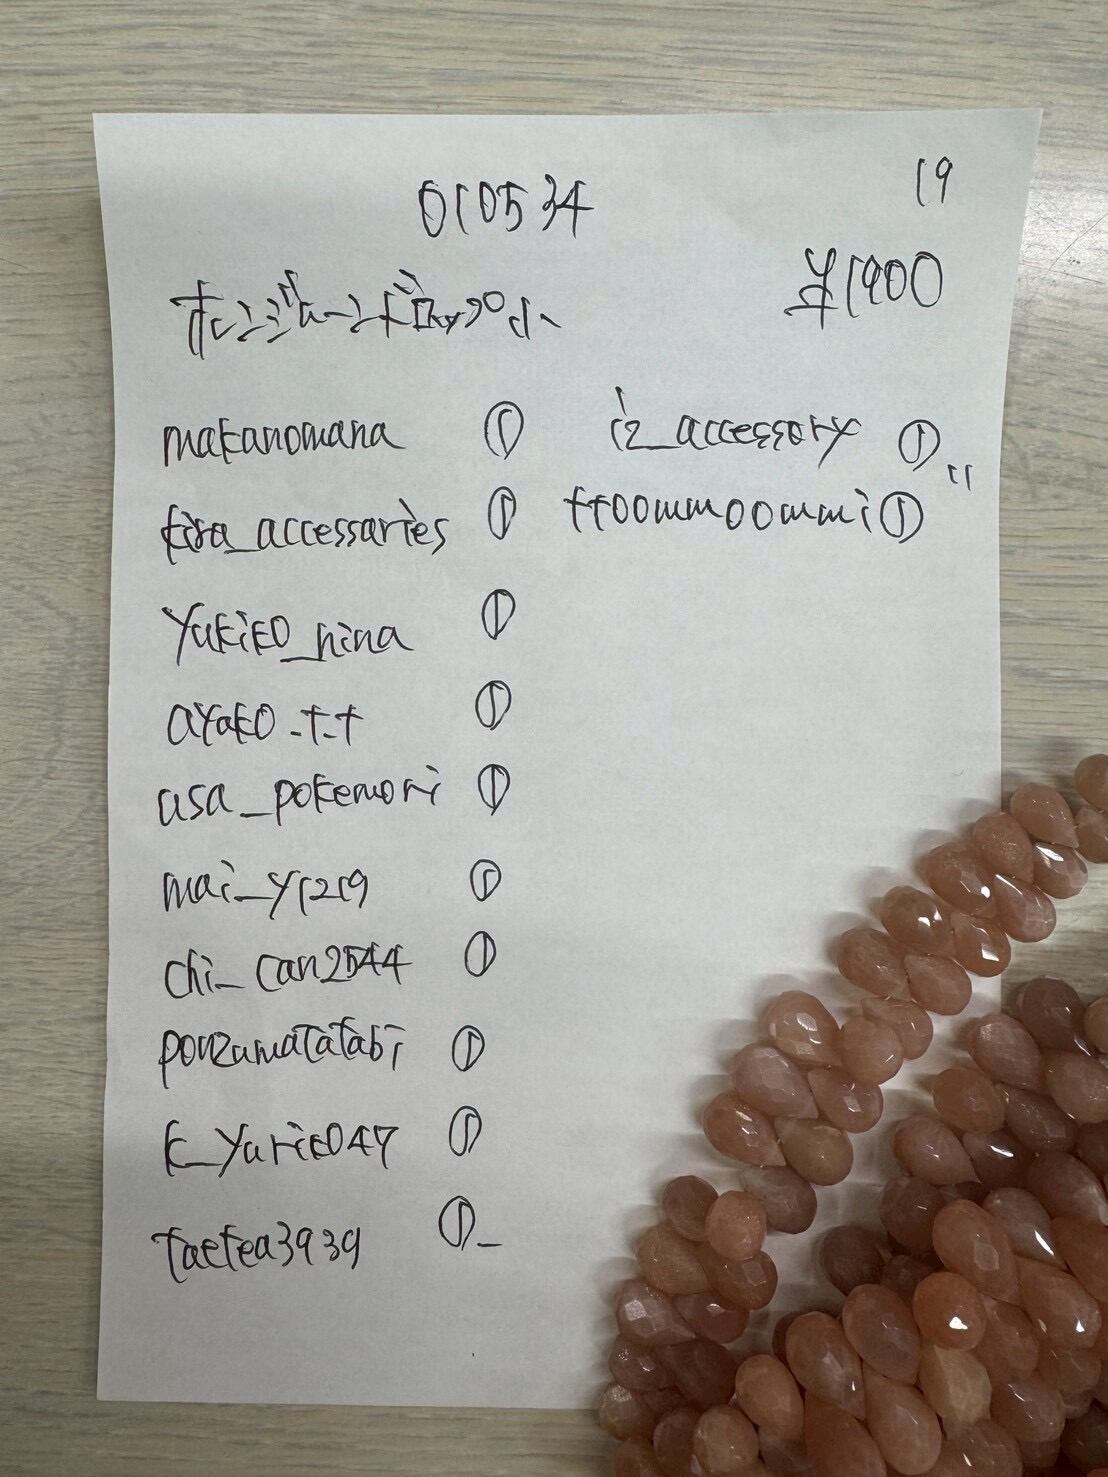 010534
19
¥1900
makanomana ①
kira_accessaries ①
yukiko_nina ①
ayako_t_t ①
asa_pokemori ①
mai_y1219 ①
chi_can2544 ①
ponzumatatabi ①
k_yuriko47 ①
taetea3939 ①
iz_accessory ①
ttoommoommi ①